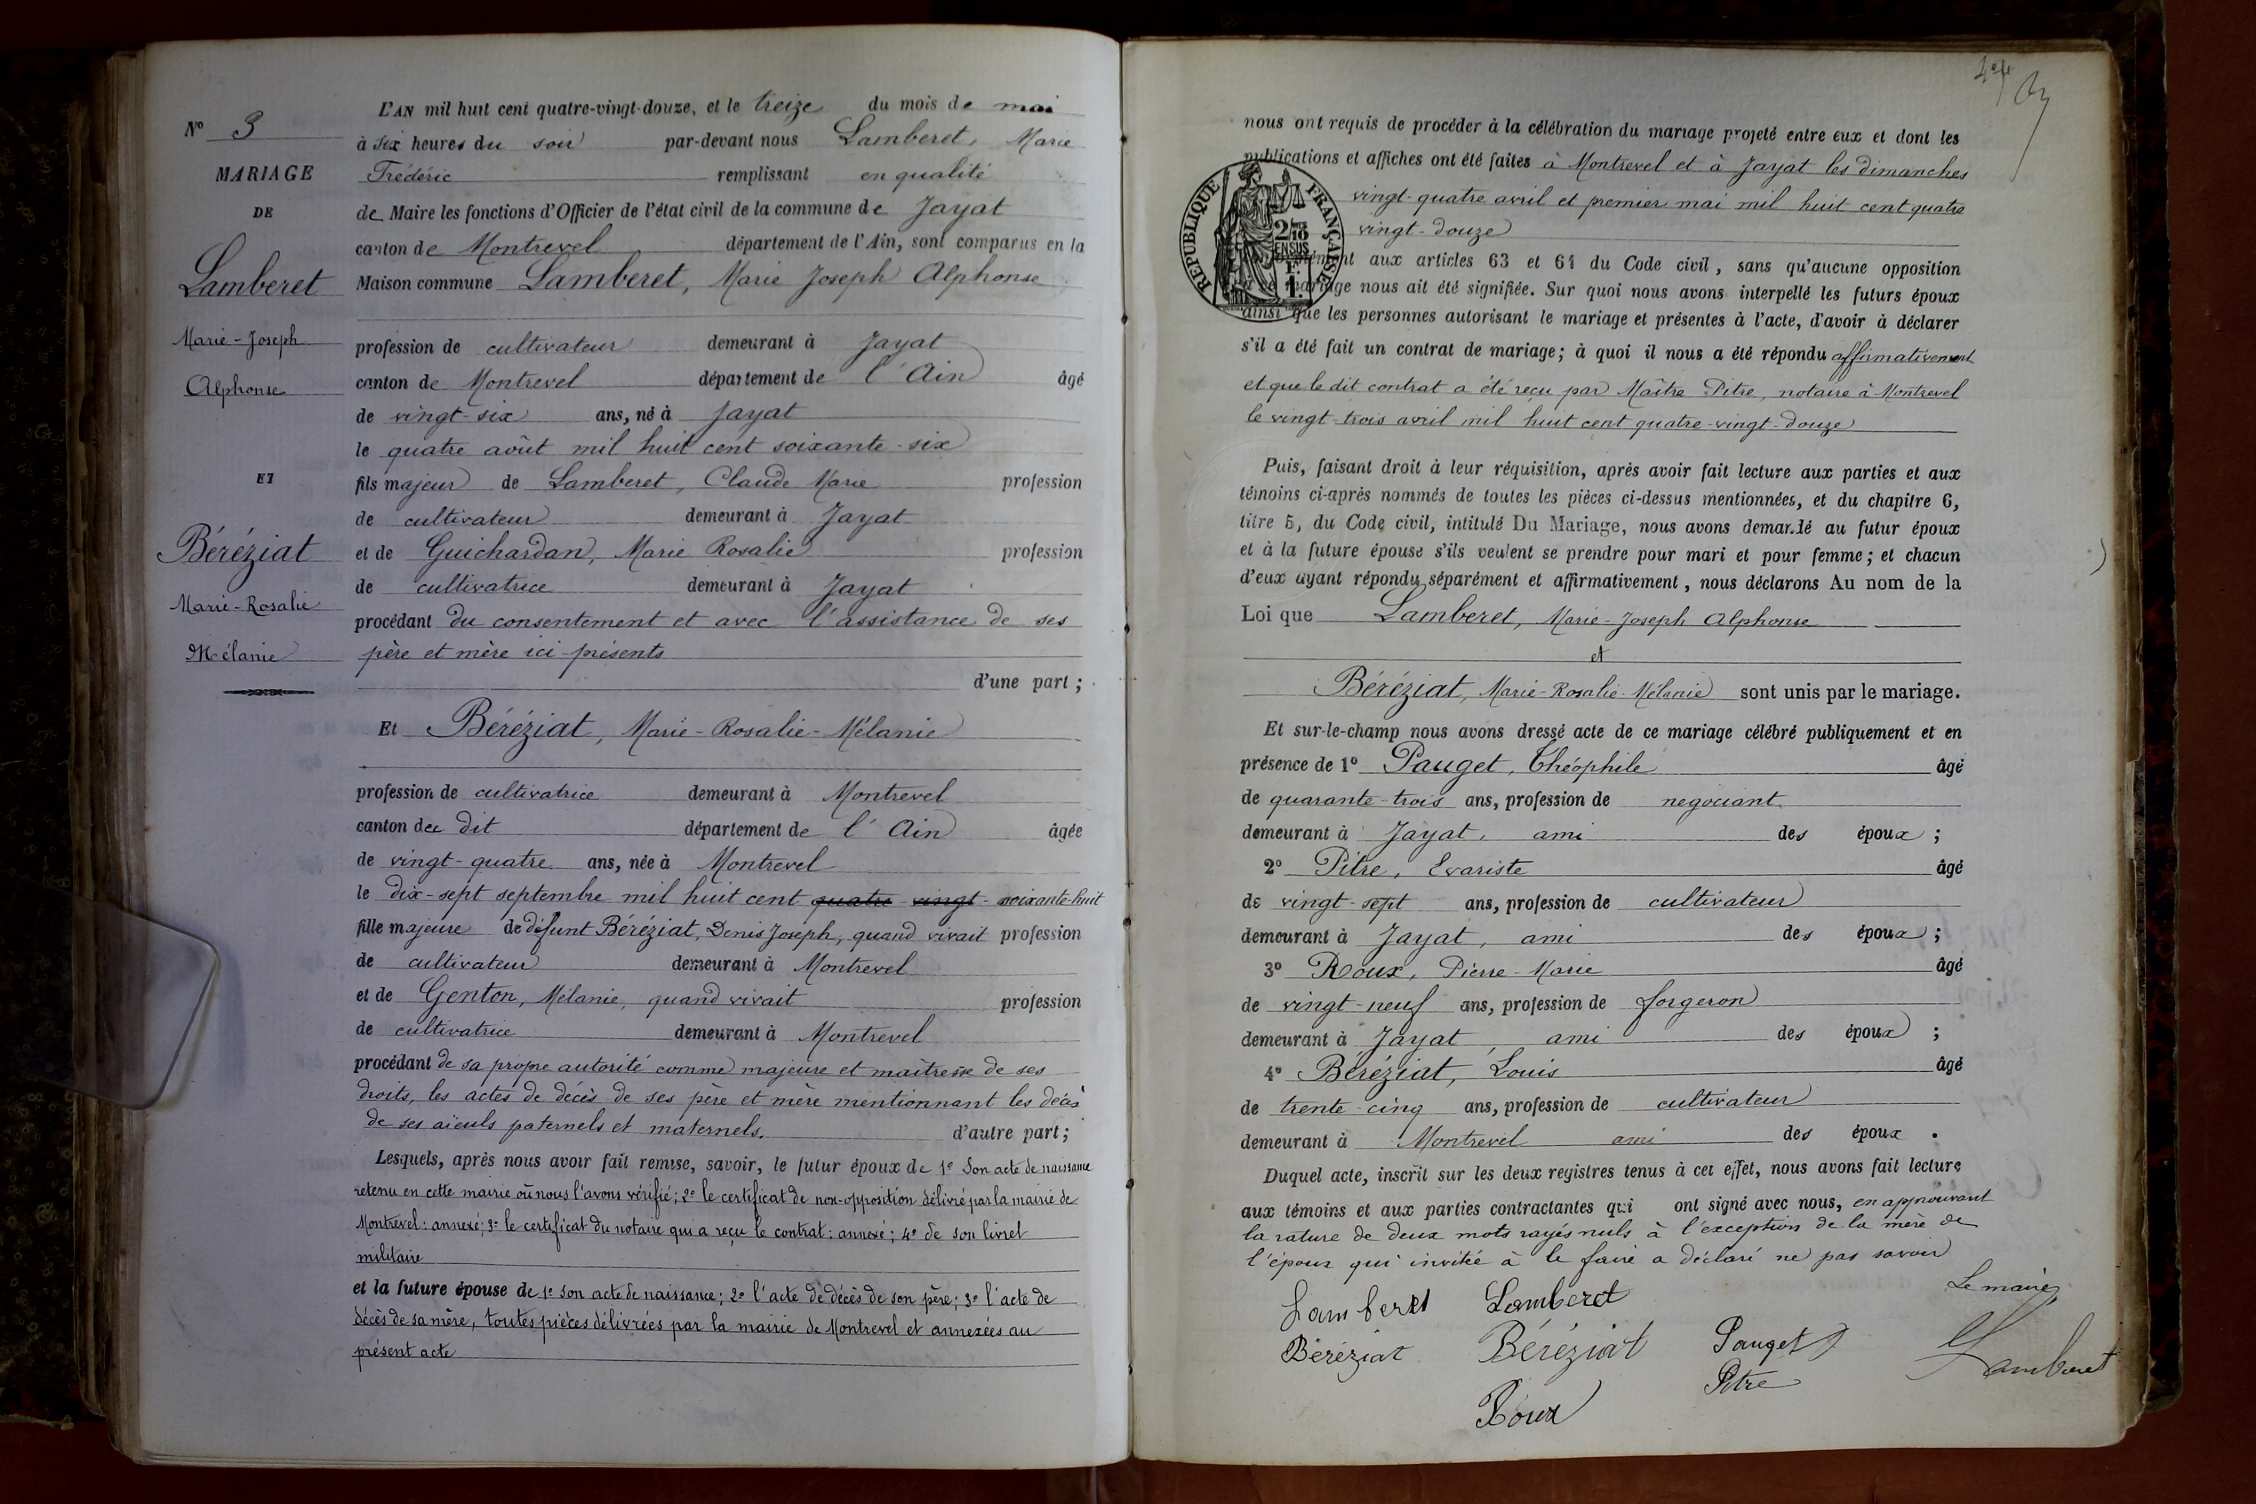 L'AN mil huit cent quatre-vingt-douze, et le treize du mois de mai
à six heures du soir par-devant nous Lamberet, Marie
Frédéric remplissant en qualité
de Maire les fonctions d'Officier de l'état civil de la commune de Jayat
canton de Montrevel département de l'Ain, sont comparus en la
Maison commune Lamberet, Marie Joseph Alphonse
profession de cultivateur demeurant à Jayat
canton de Montrevel département de l'Ain âgé
de vingt-six ans, né à Jayat
le quatre août mil huit cent soixante-six
fils majeur de Lamberet, Claude Marie profession
de cultivateur demeurant à Jayat
et de Guichardan, Marie Rosalie profession
de cultivatrice demeurant à Jayat
procédant du consentement et avec l'assistance de ses
père et mère ici présents
d'une part;
Et Béréziat, Marie-Rosalie-Mélanie
profession de cultivatrice demeurant à Montrevel
canton de dit département de l'Ain âgée
de vingt-quatre ans, née à Montrevel
le dix-sept septembre mil huit cent quatre-vingt-soixante-huit
fille majeure de défunt Béréziat, Denis Joseph, quand vivait profession
de cultivateur demeurant à Montrevel
et de Genton, Mélanie, quand vivait profession
de cultivatrice demeurant à Montrevel
procédant de sa propre autorité comme majeure et maîtresse de ses
droits, les actes de décès de ses père et mère mentionnant les décès
de ses aïeuls paternels et maternels. d'autre part;
Lesquels, après nous avoir fait remise, savoir, le futur époux de 1º Son acte de naissance
retenu en cette mairie où nous l'avons vérifié; 2º le certificat de non-opposition délivré par la mairie de
Montrevel: annexé; 3º le certificat du notaire qui a reçu le contrat: annexé; 4º de son livret
militaire
et la future épouse de 1º son acte de naissance; 2º l'acte de décès de son père; 3º l'acte de
décès de sa mère, toutes pièces délivrées par la mairie de Montrevel et annexées au
présent acte
Nº 3
MARIAGE
DE
Lamberet
Marie-Joseph
Alphonse
ET
Béréziat
Marie-Rosalie
Mélanie
nous ont requis de procéder à la célébration du mariage projeté entre eux et dont les
publications et affiches ont été faites à Montrevel et à Jayat les dimanches
vingt-quatre avril et premier mai mil huit cent quatre
vingt-douze
aux articles 63 et 64 du Code civil, sans qu'aucune opposition
mariage nous ait été signifiée. Sur quoi nous avons interpellé les futurs époux
ainsi que les personnes autorisant le mariage et présentes à l'acte, d'avoir à déclarer
s'il a été fait un contrat de mariage; à quoi il nous a été répondu affirmativement
et que le dit contrat a été reçu par Maître Pitre, notaire à Montrevel
le vingt-trois avril mil huit cent quatre-vingt-douze
RÉPUBLIQUE FRANÇAISE
2/10
EN SUS
1 F.
Puis, faisant droit à leur réquisition, après avoir fait lecture aux parties et aux
témoins ci-après nommés de toutes les pièces ci-dessus mentionnées, et du chapitre 6,
titre 5, du Code civil, intitulé Du Mariage, nous avons demandé au futur époux
et à la future épouse s'ils veulent se prendre pour mari et pour femme; et chacun
d'eux ayant répondu séparément et affirmativement, nous déclarons Au nom de la
Loi que Lamberet, Marie-Joseph Alphonse
et
Béréziat, Marie-Rosalie-Mélanie sont unis par le mariage.
Et sur-le-champ nous avons dressé acte de ce mariage célébré publiquement et en
présence de 1º Pauget, Théophile âgé
de quarante-trois ans, profession de negociant
demeurant à Jayat, ami des époux;
2º Pitre, Evariste âgé
de vingt-sept ans, profession de cultivateur
demeurant à Jayat, ami des époux;
3º Roux, Pierre-Marie âgé
de vingt-neuf ans, profession de forgeron
demeurant à Jayat, ami des époux;
4º Béréziat, Louis âgé
de trente-cinq ans, profession de cultivateur
demeurant à Montrevel ami des époux.
Duquel acte, inscrit sur les deux registres tenus à cet effet, nous avons fait lecture
aux témoins et aux parties contractantes qui ont signé avec nous, en approuvant
la rature de deux mots rayés nuls à l'exception de la mère de
l'époux qui invitée à le faire a déclaré ne pas savoir
Le maire,
Lamberet Lamberet
Béréziat Béréziat Pauget Lamberet
Pitre
Roux